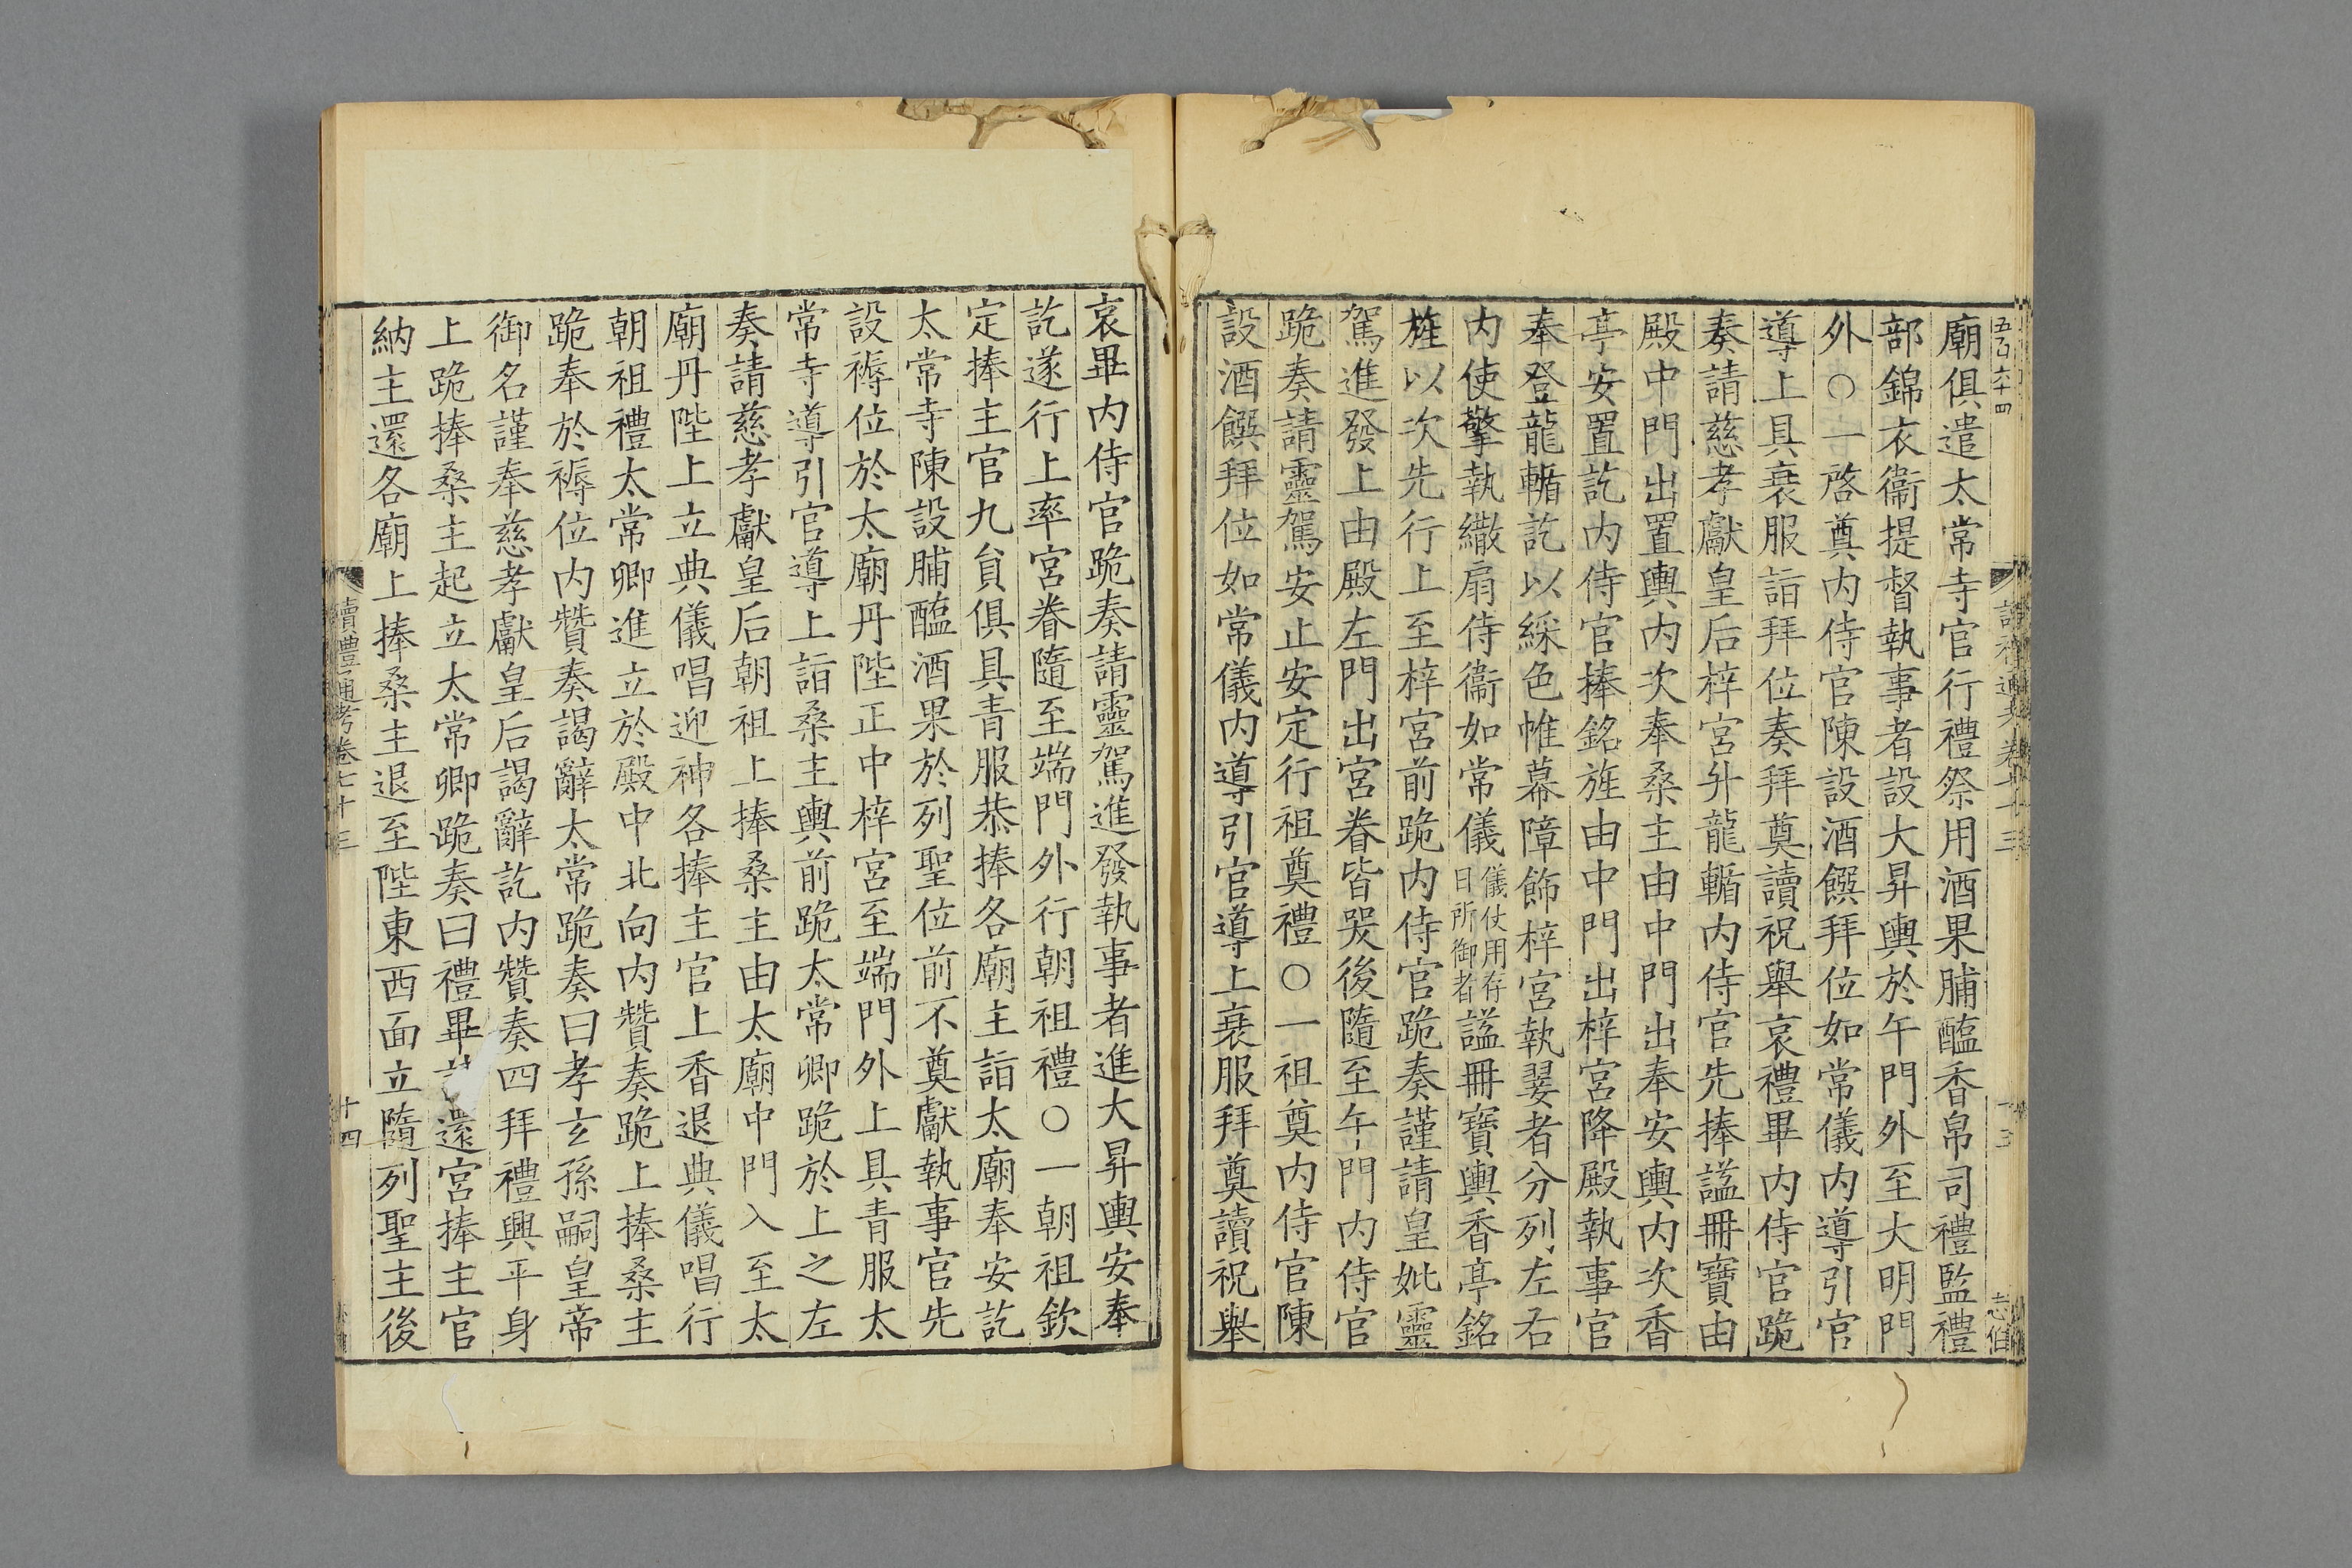 五百六十四
廟俱遣太常寺官行禮祭用酒果脯醢香帛司禮監禮
部錦衣衞提督執事者設大昇輿於午門外至大明門
外○一啓奠內侍官陳設酒饌拜位如常儀內導引官
導上具衰服詣拜位奏拜奠讀祝舉哀禮畢內侍官跪
奏請慈孝獻皇后梓宮升龍輴內侍官先捧諡冊寶由
殿中門出置輿內次奉桑主由中門出奉安輿內次香
亭安置訖內侍官捧銘旌由中門出梓宮降殿執事官
奉登龍輴訖以綵色帷幕障飾梓宮執翣者分列左右
內使擎執繖扇侍衞如常儀儀仗用存日所御者諡冊寶輿香亭銘
旌以次先行上至梓宮前跪內侍官跪奏謹請皇妣靈
駕進發上由殿左門出宮眷皆哭後隨至午門內侍官
跪奏請靈駕安止安定行祖奠禮○一祖奠內侍官陳
設酒饌拜位如常儀內導引官導上衰服拜奠讀祝舉
哀畢內侍官跪奏請靈駕進發執事者進大昇輿安奉
訖遂行上率宮眷隨至端門外行朝祖禮○一朝祖欽
定捧主官九貟俱具青服恭捧各廟主詣太廟奉安訖
太常寺陳設脯醢酒果於列聖位前不奠獻執事官先
設褥位於太廟丹陛正中梓宮至端門外上具青服太
常寺導引官導上詣桑主輿前跪太常卿跪於上之左
奏請慈孝獻皇后朝祖上捧桑主由太廟中門入至太
廟丹陛上立典儀唱迎神各捧主官上香退典儀唱行
朝祖禮太常卿進立於殿中北向內贊奏跪上捧桑主
跪奉於褥位內贊奏謁辭太常跪奏曰孝玄孫嗣皇帝
御名謹奉慈孝獻皇后謁辭訖內贊奏四拜禮興平身
上跪捧桑主起立太常卿跪奏曰禮畢還宮捧主官
納主還各廟上捧桑主退至陛東西面立隨列聖主後
續禮通考卷七十三
十四